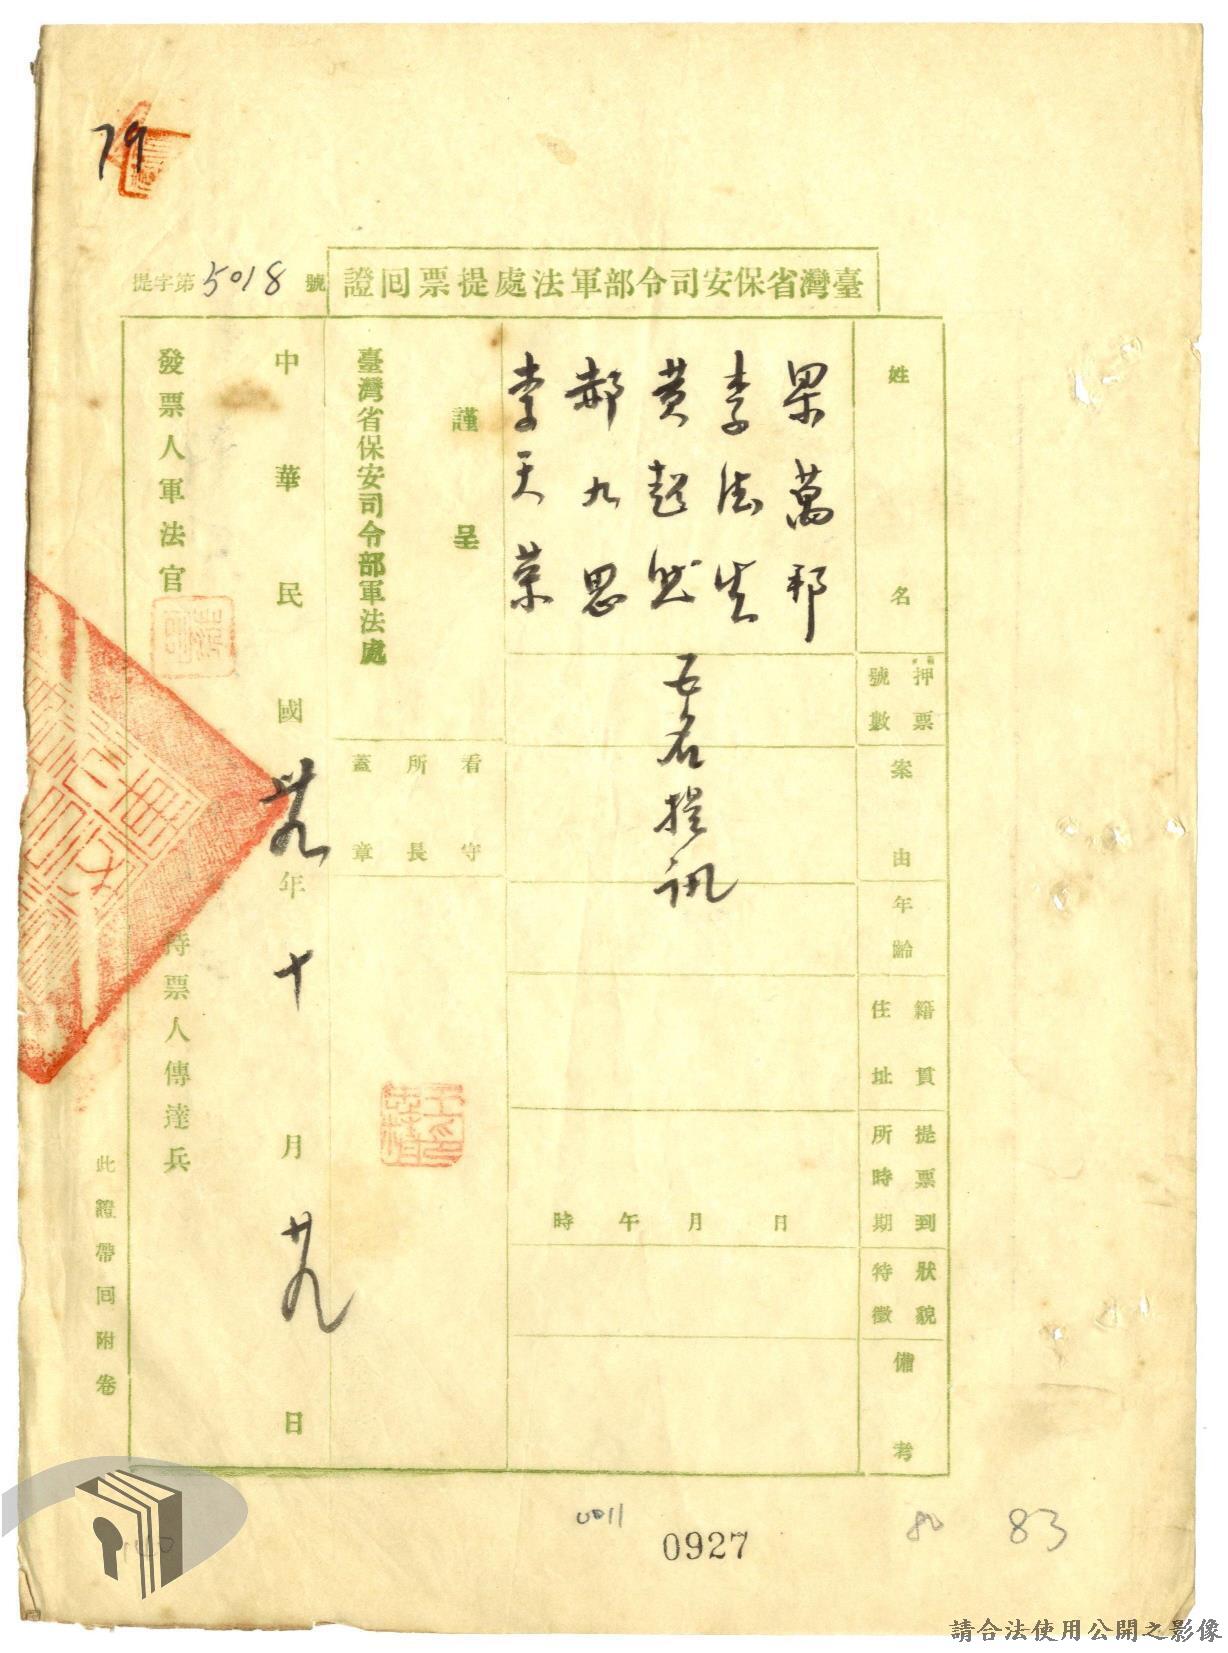 79
臺灣省保安司令部軍法處提票回證
提字第5018號
姓名
押票號數
案由
年齡
籍貫住址
提票到所時期
狀貌特徵
備考
梁萬邦
李法生
黃超然
郝九思
李天榮
五名提訊
日月午時
謹呈
臺灣省保安司令部軍法處
看守所長蓋章
中華民國卅九年十月廿九日
發票人軍法官
持票人傳達兵
此證帶回附卷
0011
0927
80
83
請合法使用公開之影像